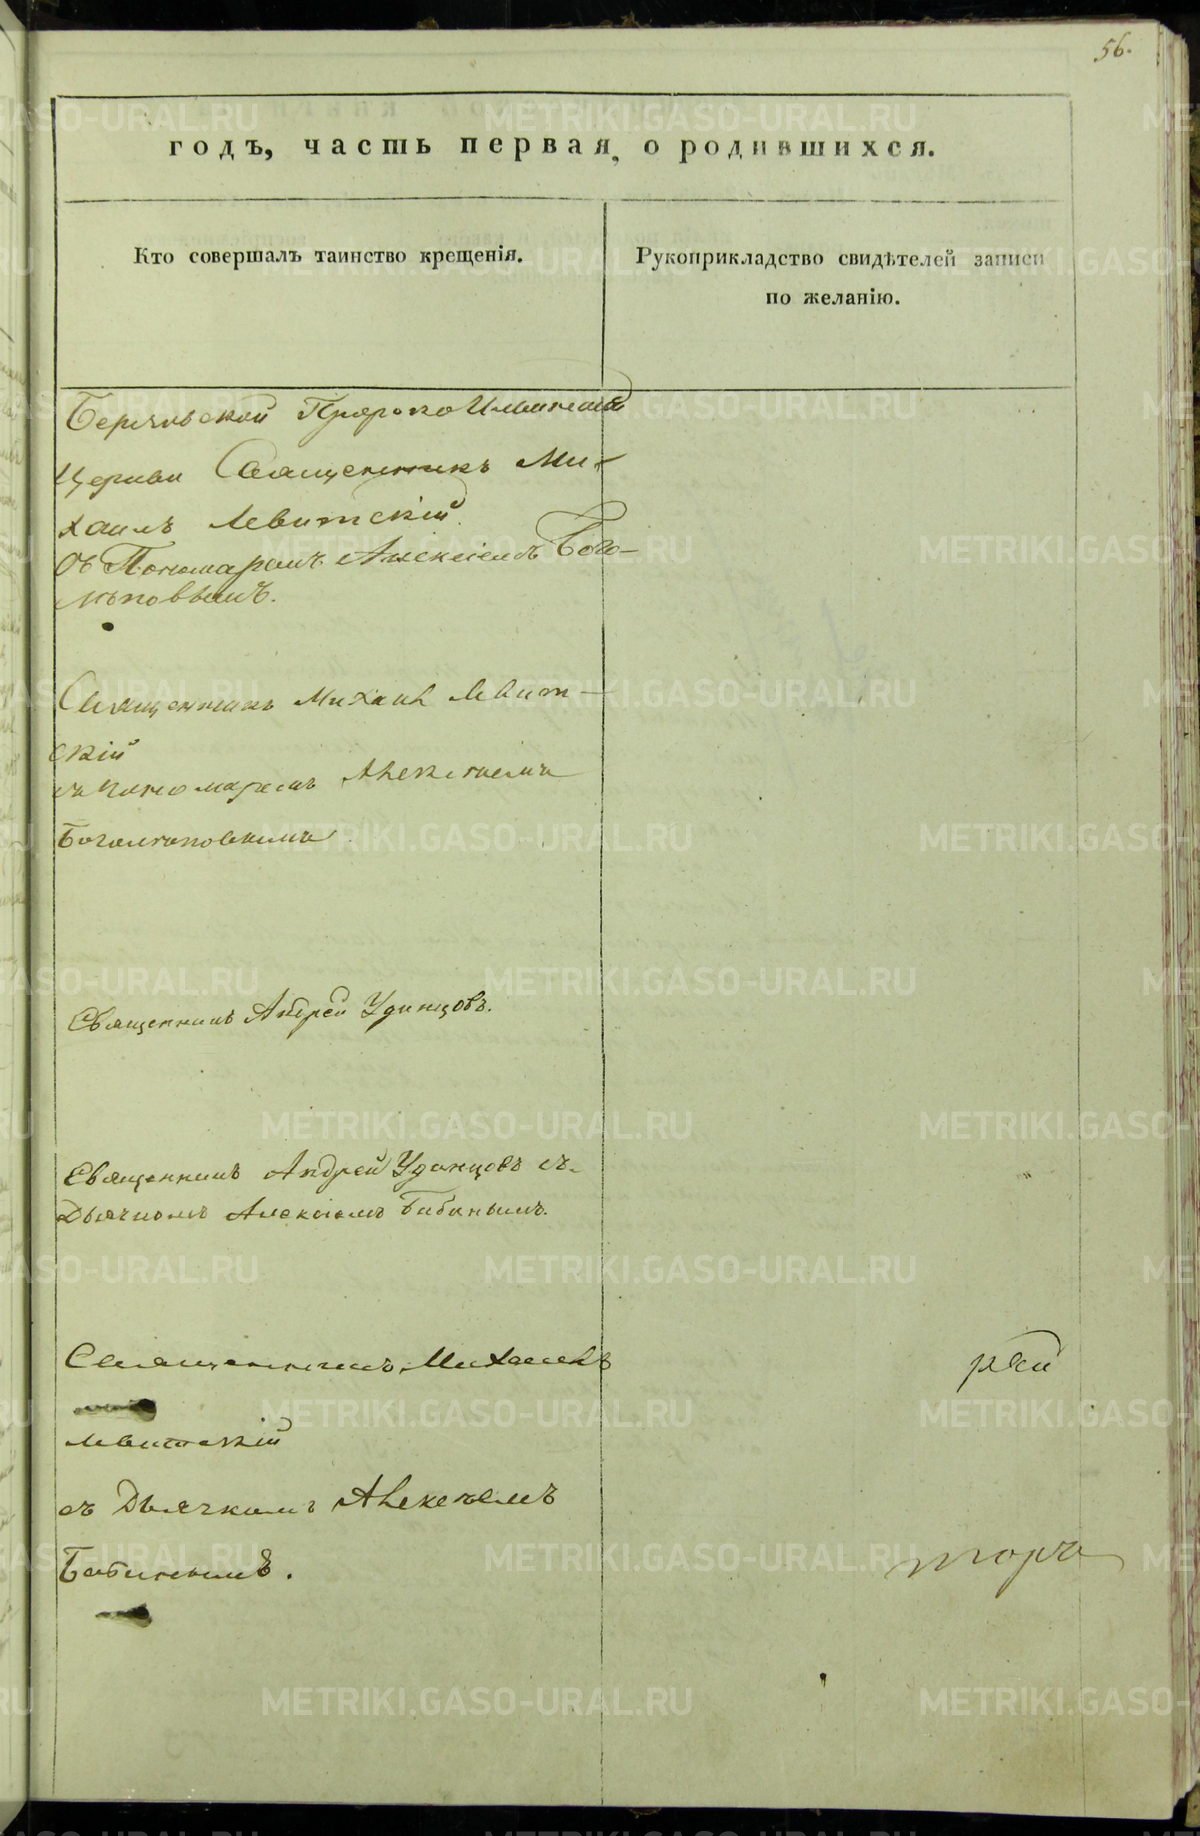 56.
годъ, часть первая, о родившихся.
Кто совершалъ таинство крещенія.
Рукоприкладство свидѣтелей записи
по желанію.
Пророко Ильинской
Церкви Священникъ Ми-
хаилъ Левитскій
съ Пономаремъ Алексіемъ Бого-
лѣповымъ.
Священникъ Михаилъ Левит-
скій
съ пономаремъ Алексіемъ
Боголѣповымъ
Священникъ Андрей Удинцовъ.
Священникъ Андрей Удинцовъ съ
Дьячкомъ Алексіемъ Бабинымъ.
Священникъ Михаилъ
рѣй
Левитскій
съ Дьячкомъ Алексѣемъ
Бабинымъ.
торъ
METRIKI.GASO-URAL.RU